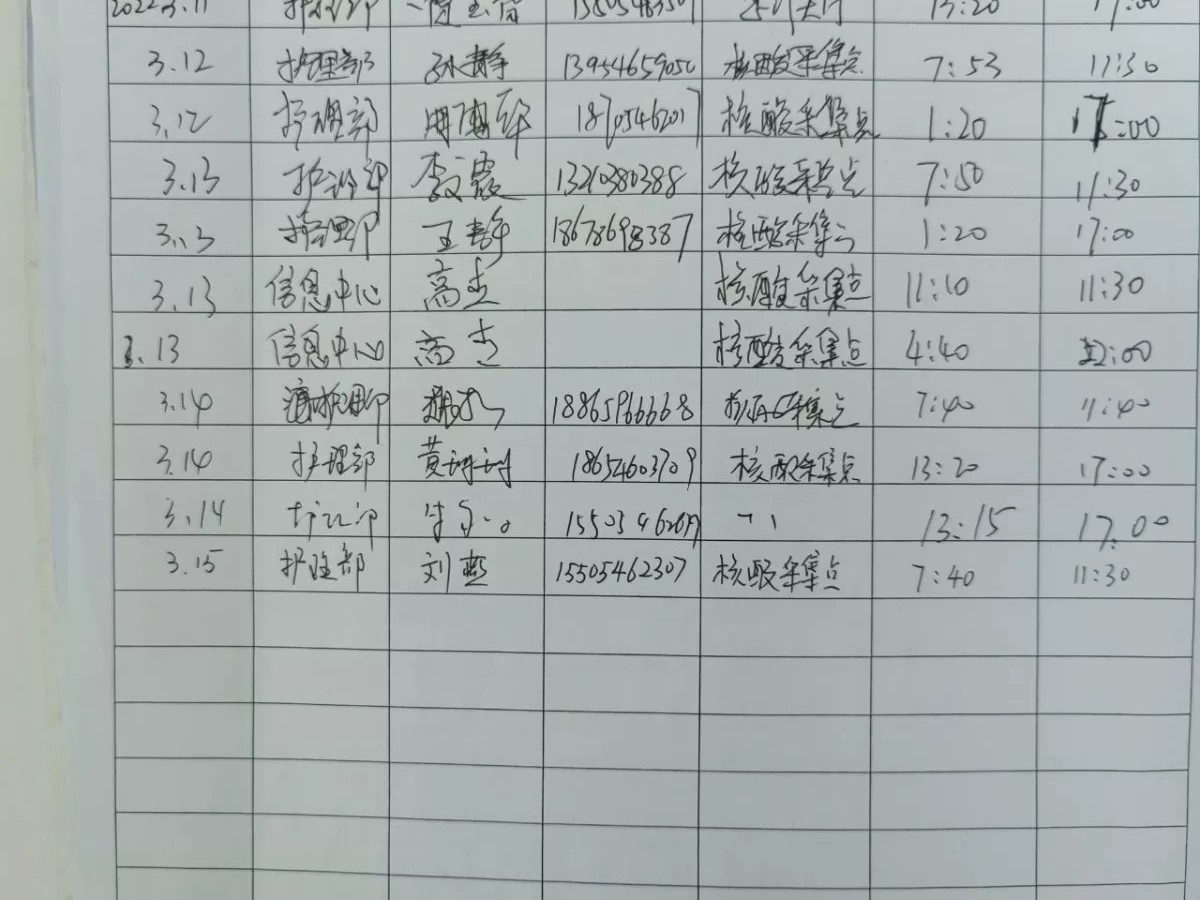 2022.3.11 护理部 13:20 17:00
3.12 护理部 孙静 13954659050 核酸采集点 7:53 11:30
3.12 护理部 18705462017 核酸采集点 1:20 17:00
3.13 护理部 李霞 13210380388 核酸采集点 7:50 11:30
3.13 护理部 王静 18678698387 核酸采集点 1:20 17:00
3.13 信息中心 高杰 核酸采集点 11:10 11:30
3.13 信息中心 高杰 核酸采集点 4:40 22:00
3.14 护理部 18865966668 采集点 7:40 11:40
3.14 护理部 黄珊珊 18654603709 核酸采集点 13:20 17:00
3.14 护理部 13:15 17:00
3.15 护理部 刘燕 15505462307 核酸采集点 7:40 11:30